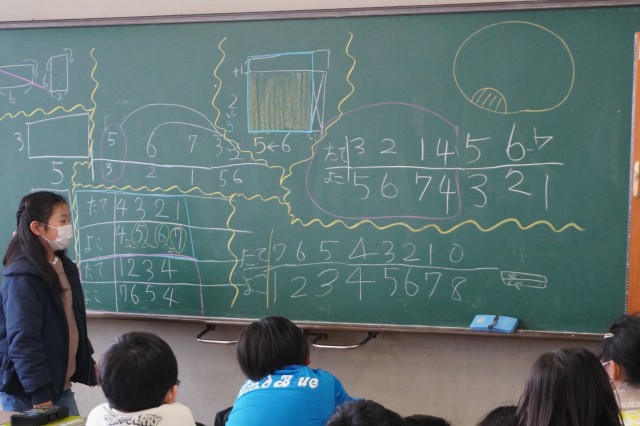 6
3
5
5 6 7 3 2
3 2 1 5 6
+1
2
5←6
たて 3 2 1 4 5 6 7
よこ 5 6 7 4 3 2 1
たて 4 3 2 1
よこ 4 5 6 7
たて 1 2 3 4
よこ 7 6 5 4
たて 7 6 5 4 3 2 1 0
よこ 1 2 3 4 5 6 7 8